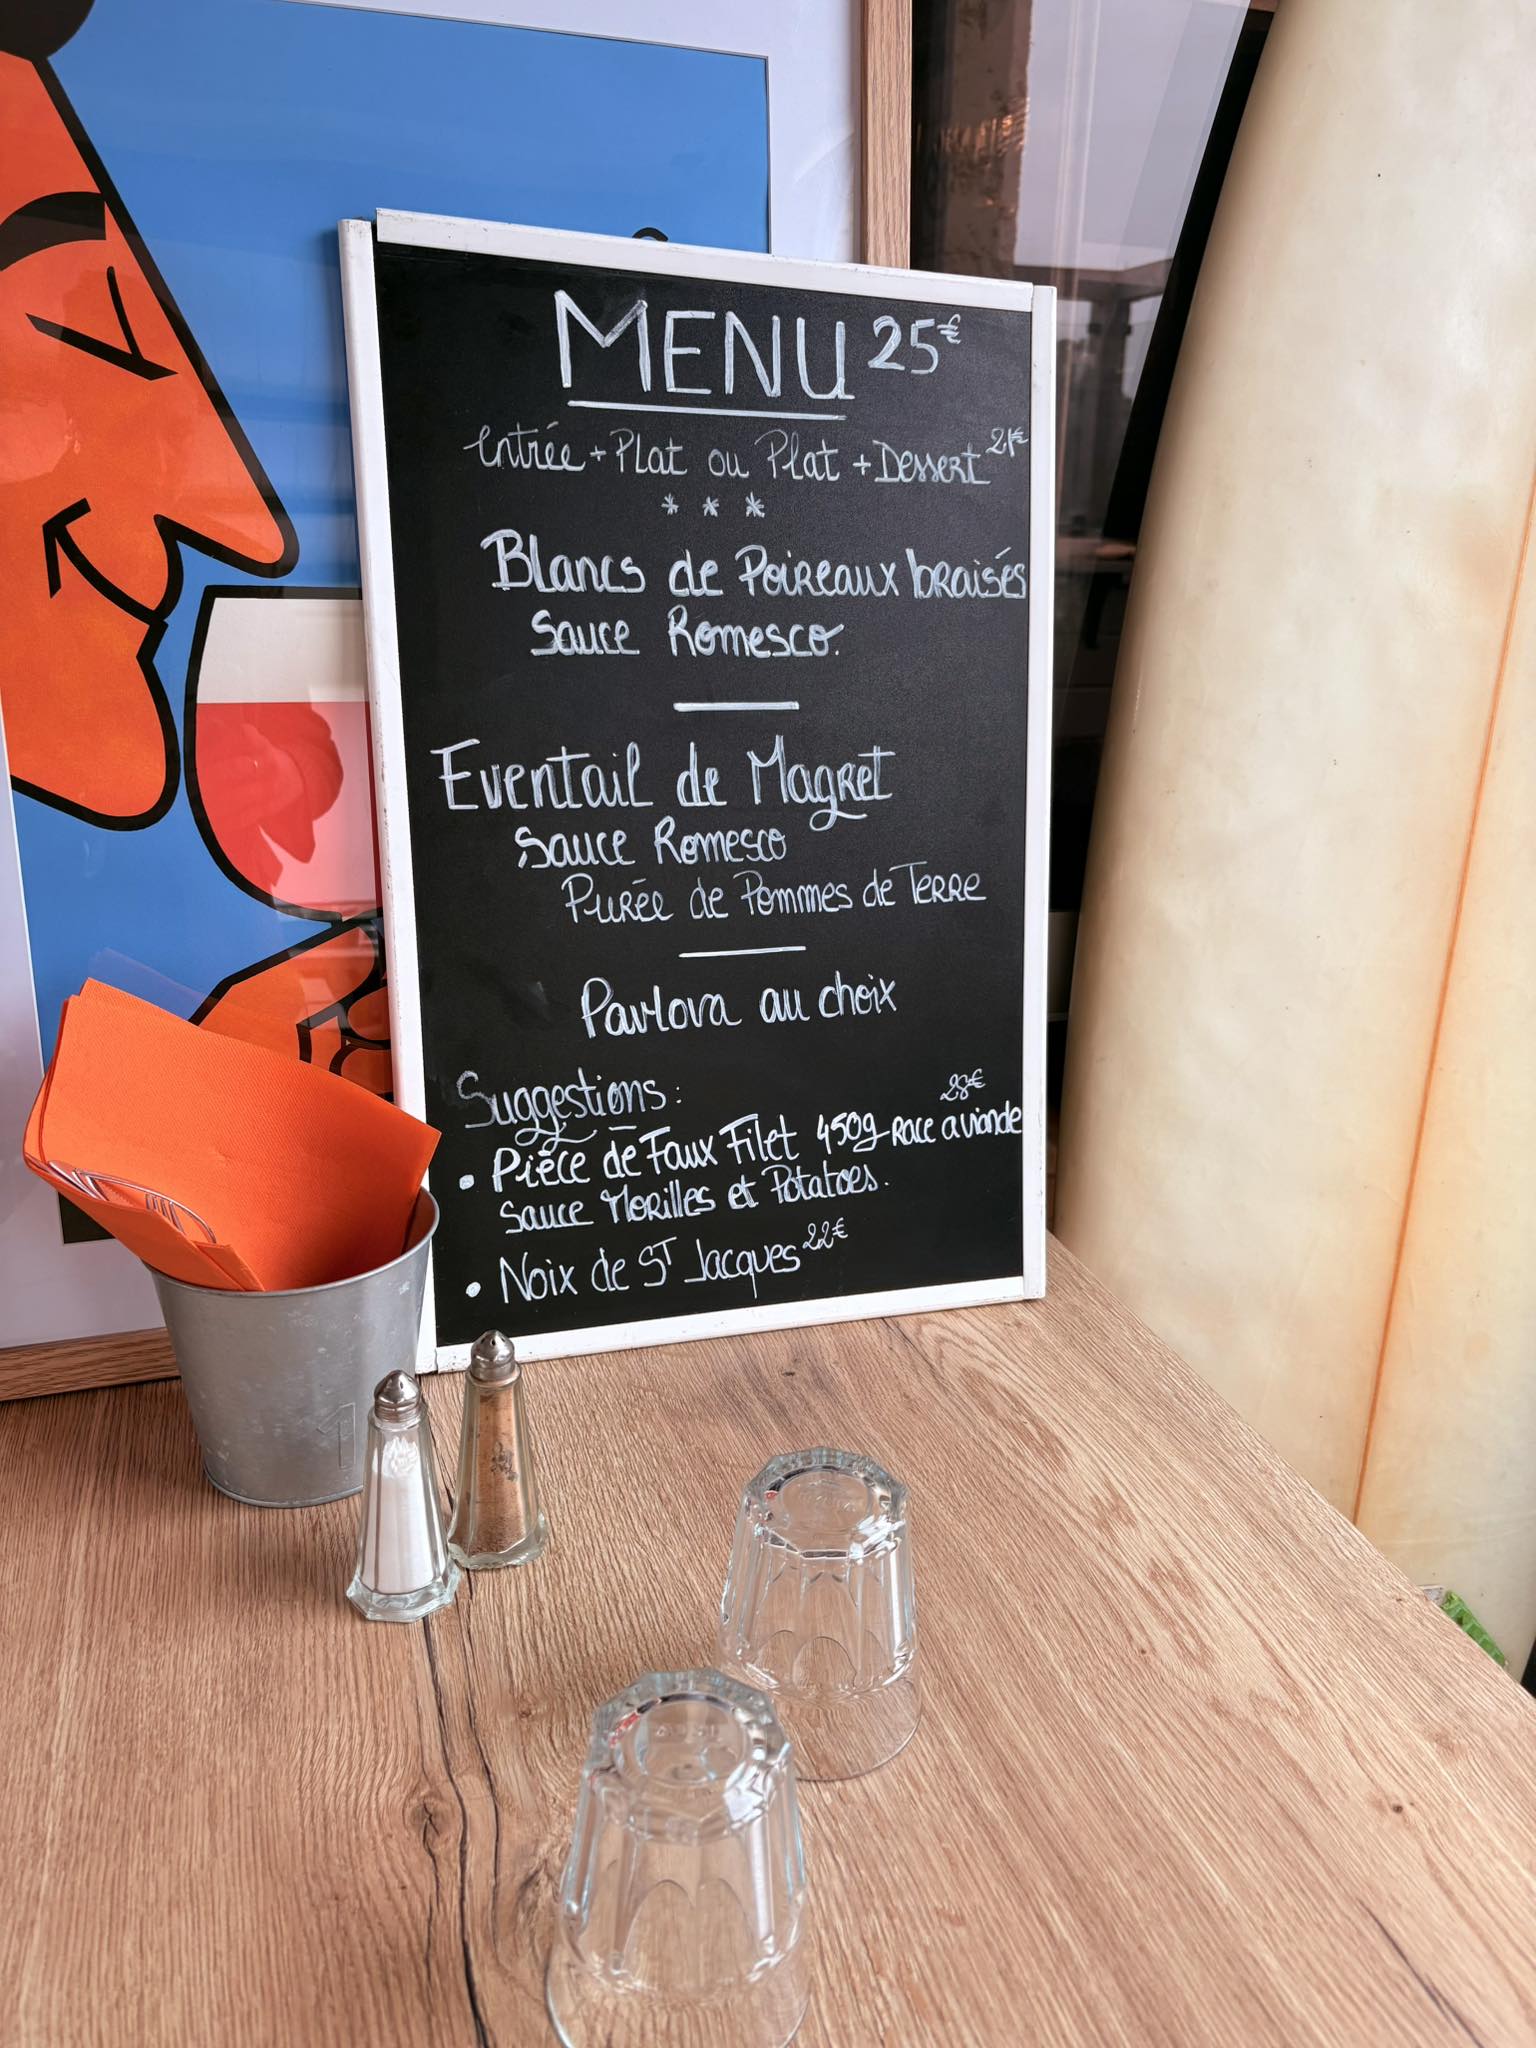 MENU 25€
Entrée + Plat ou Plat + Dessert 21€
* * *
Blancs de Poireaux braisés
Sauce Romesco.
Eventail de Magret
Sauce Romesco
Purée de Pommes de Terre
Pavlova au choix
Suggestions :
28€
• Pièce de Faux Filet 450g race a viande
Sauce Morilles et Potatoes.
• Noix de ST Jacques 22€
1